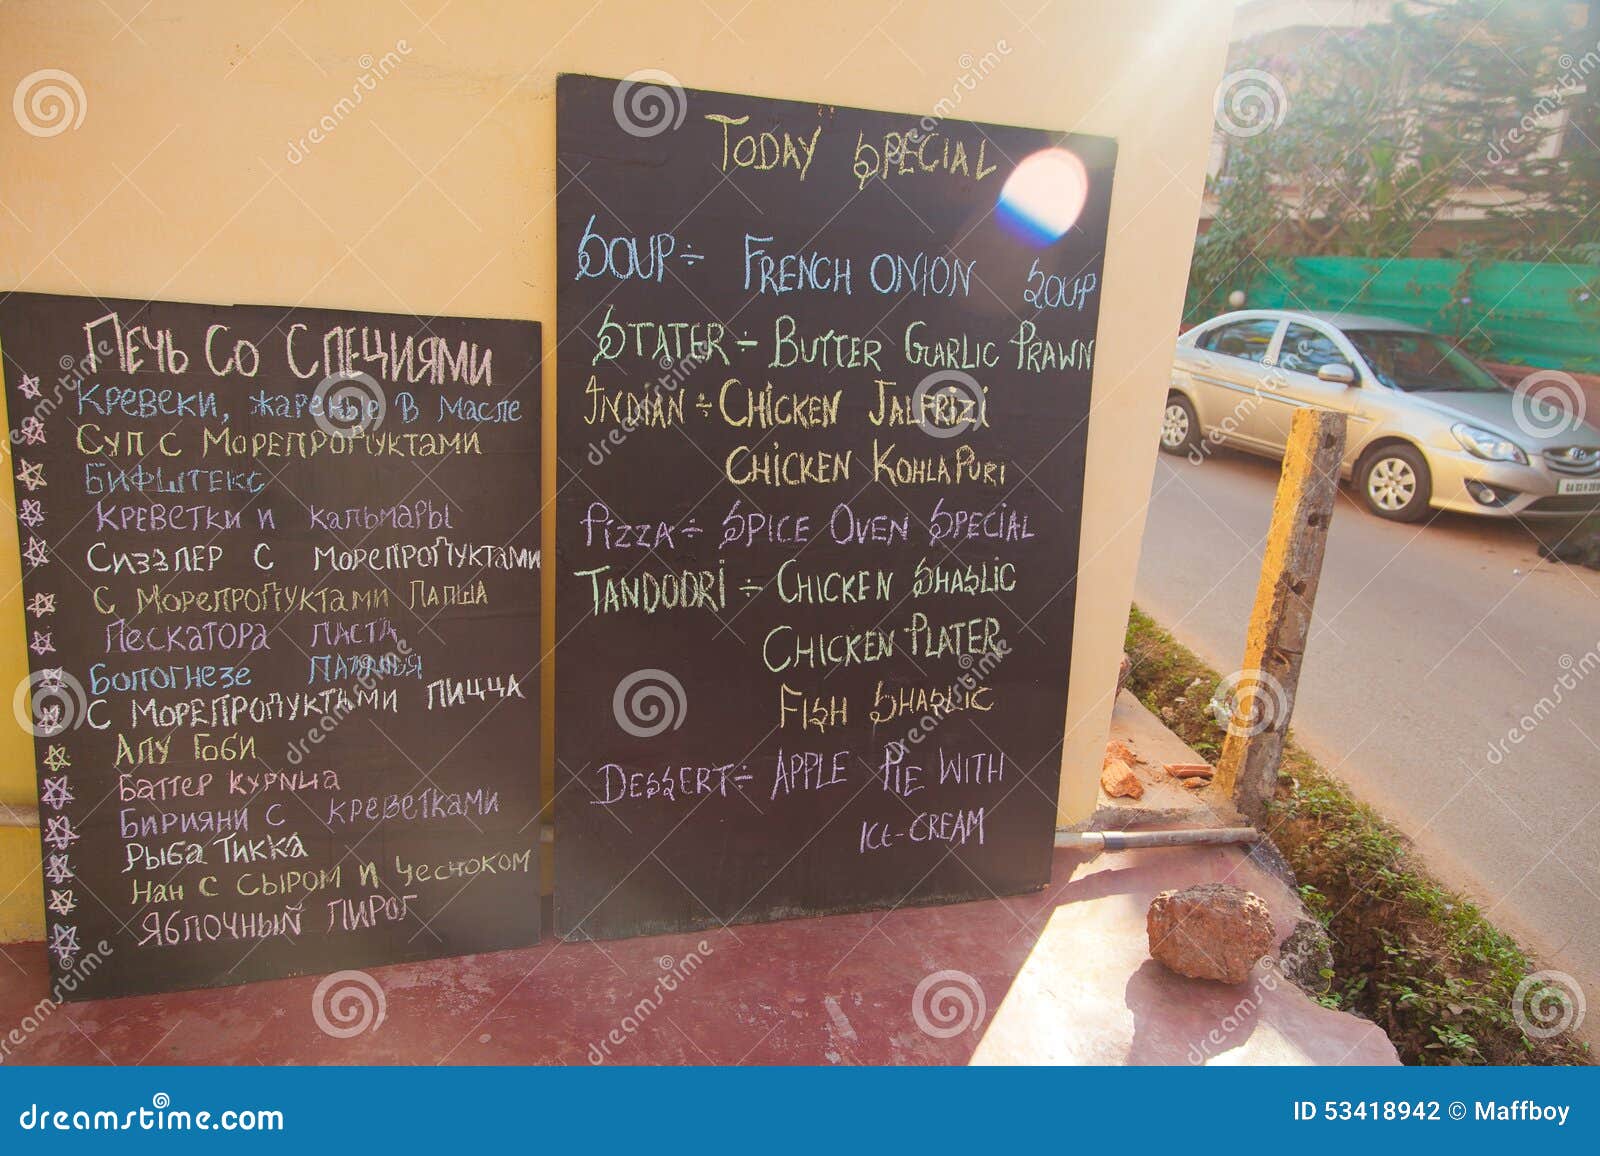 Печь Со Специями
Кревеки, жаренье в масле
Суп с Морепродуктами
Бифштекс
Креветки и кальмары
Сиззлер с морепродуктами
С Морепродуктами Лапша
Пескатора паста
Бологнезе
С Морепродуктами пицца
Алу Гоби
Баттер курица
Бирияни с креветками
Рыба Тикка
Нан с сыром и чесноком
Яблочный пирог
Today Special
Soup ÷ French Onion Soup
Stater ÷ Butter Garlic Prawn
Indian ÷ Chicken Jalfrizi
Chicken Kohlapuri
Pizza ÷ Spice Oven Special
Tandoori ÷ Chicken Shaslic
Chicken Plater
Fish Shaslic
Dessert ÷ Apple Pie With
Ice-cream
dreamstime.com
ID 53418942 © Maffboy